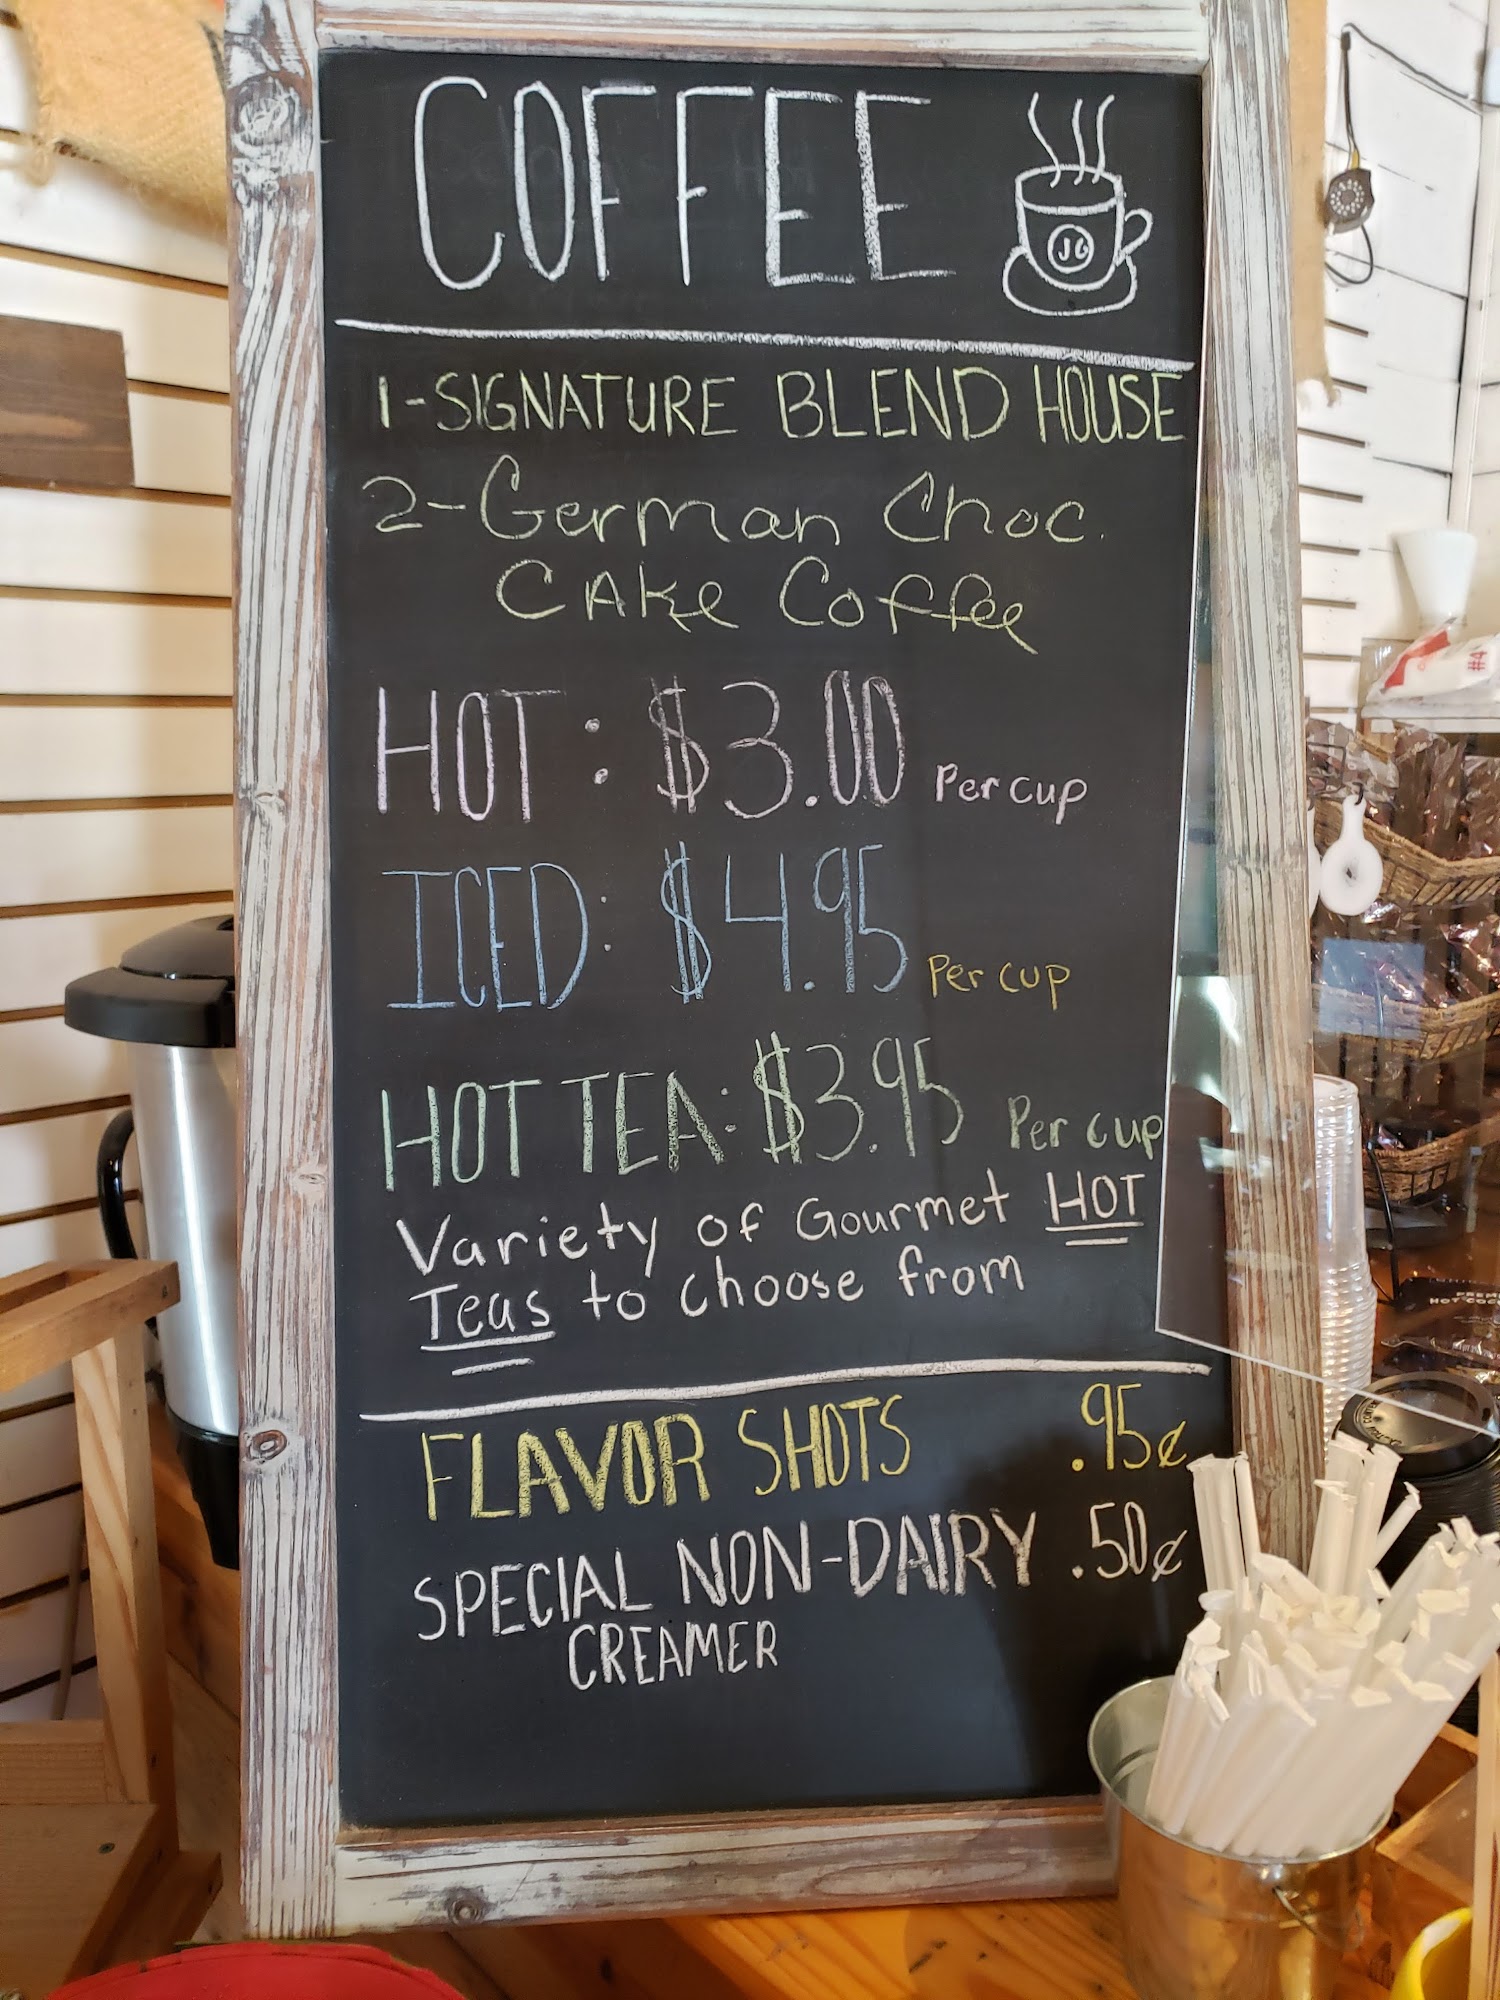 COFFEE
JG
1-SIGNATURE BLEND HOUSE
2-German Choc.
CAKe Coffee
HOT: $3.00 Per cup
ICED: $4.95 Per cup
HOT TEA: $3.95 Per cup
Variety of Gourmet HOT
Teas to choose from
FLAVOR SHOTS .95¢
SPECIAL NON-DAIRY .50¢
CREAMER
#4